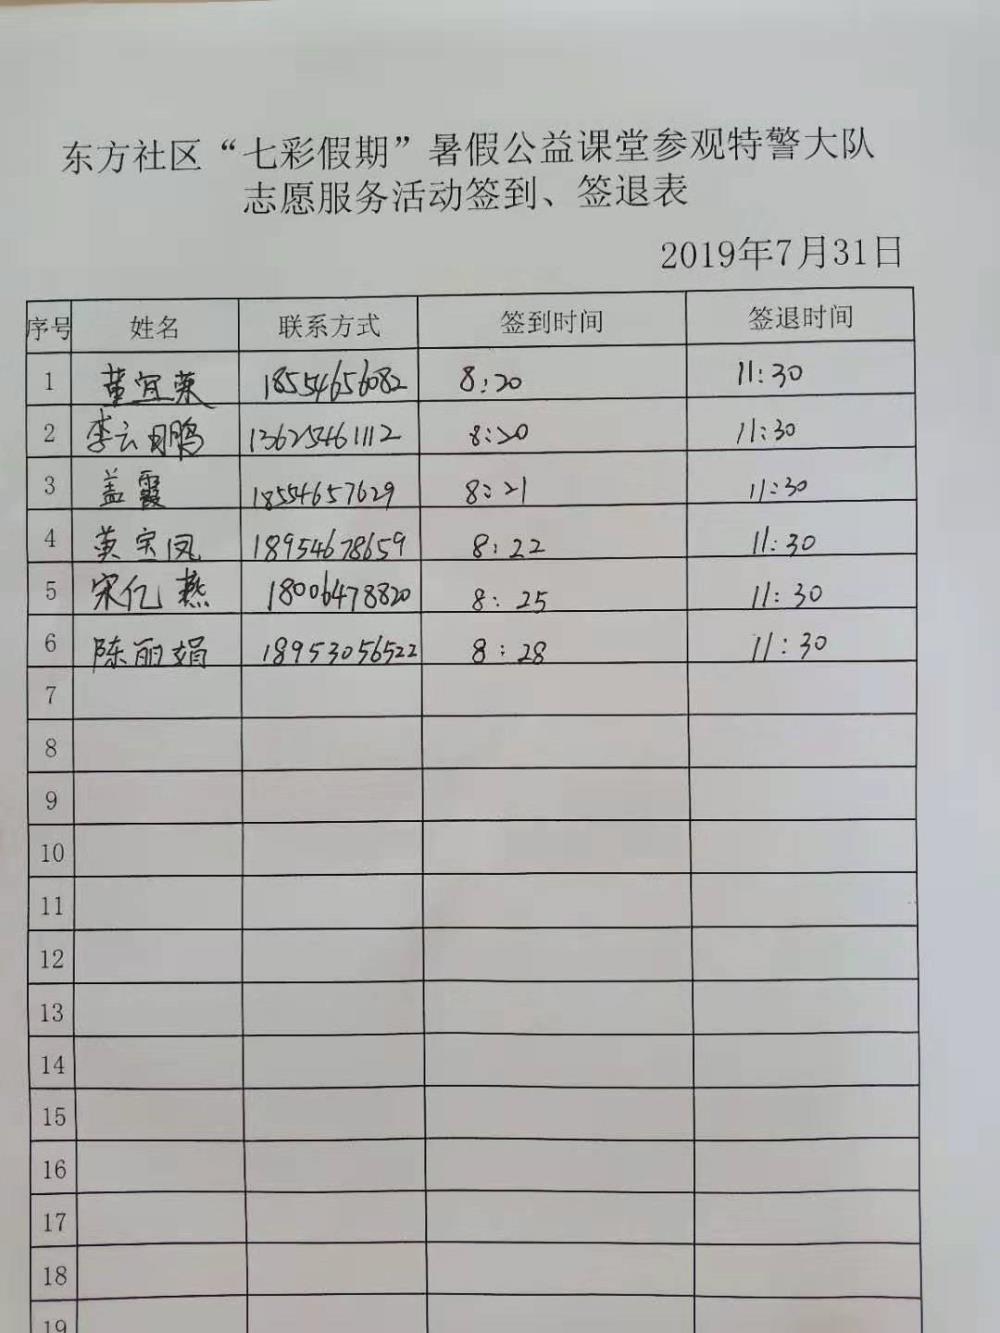 东方社区“七彩假期”暑假公益课堂参观特警大队
志愿服务活动签到、签退表
2019年7月31日
序号 姓名 联系方式 签到时间 签退时间
1 董宜荣 18554656082 8:20 11:30
2 李云鹏 13625461112 8:20 11:30
3 盖霞 18554657629 8:21 11:30
4 黄宝凤 18954678659 8:22 11:30
5 宋亿燕 18006478820 8:25 11:30
6 陈丽娟 18953056522 8:28 11:30
7
8
9
10
11
12
13
14
15
16
17
18
19